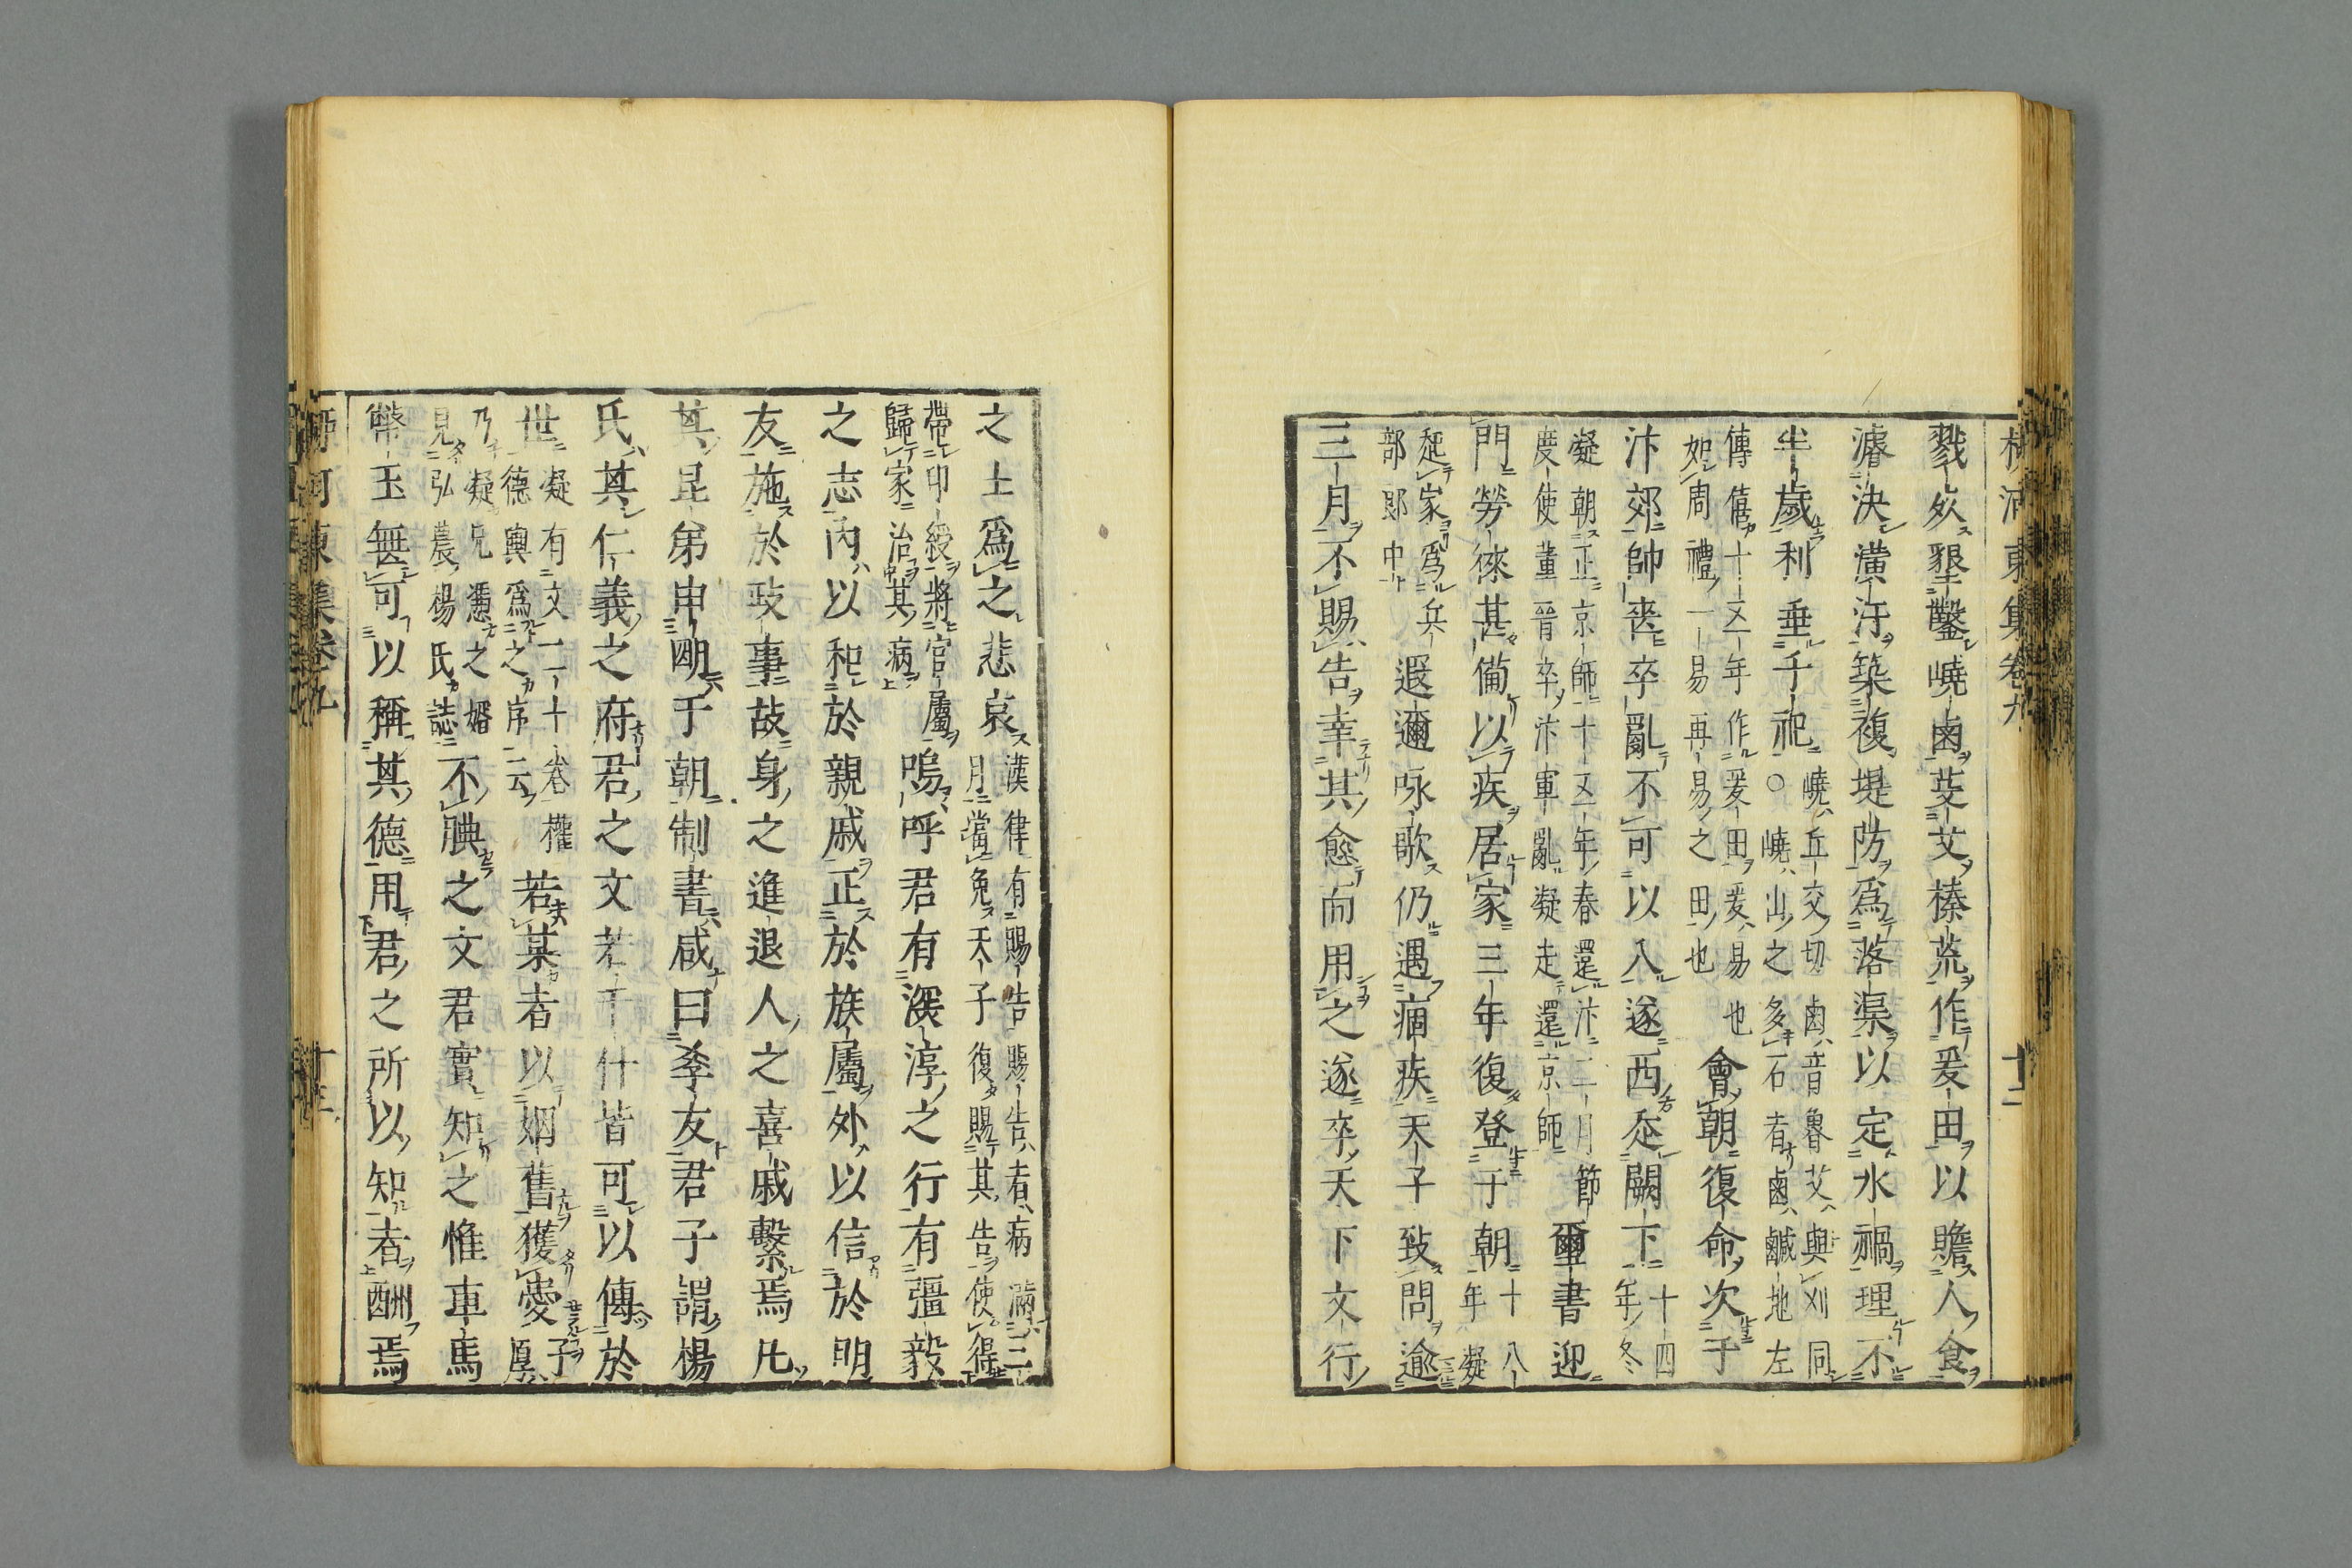 戮力墾鑿嶢鹵芟艾榛荒作爰田以贍人食
濬決潢汙築複堤防爲落渠以定水禍理不
半歲利垂千祀 嶢丘交切鹵音魯艾與刈同○嶢山之多石者鹵鹹地左
傳僖十五年作爰田爰易也如周禮一易再易之田也 會朝復命次于
汴郊帥喪卒亂不可以入遂西走闕下 十四年冬
凝朝正京師十五年春還汴二月節度使董晉卒汴軍亂凝走還京師 璽書迎
門勞徠甚備以疾居家三年復登于朝 十八年凝
起家爲兵部郎中 遐邇咏歌仍遇痼疾天子致問逾
三月不賜告幸其愈而用之遂卒天下文行
之士爲之悲哀 漢律有賜告賜告者病滿三月當免天子復賜其告使得
帶印綬將官屬歸家治其病 嗚呼君有深淳之行有彊毅
之志內以和於親戚正於族屬外以信於明
友施於政事故身之進退人之喜戚繫焉凡
其昆弟申明于朝制書咸曰孝友君子謂楊
氏其仁義之府君之文若干什皆可以傳於
世 凝有文二十卷權德輿爲之序云 若某者以姻舊獲愛 子厚
乃凝兄憑之婿見弘農楊氏誌 不腆之文君實知之惟車馬
幣玉無可以稱其德用君之所以知者酬焉
柳河東集卷九 十二
柳河東集卷九 十三